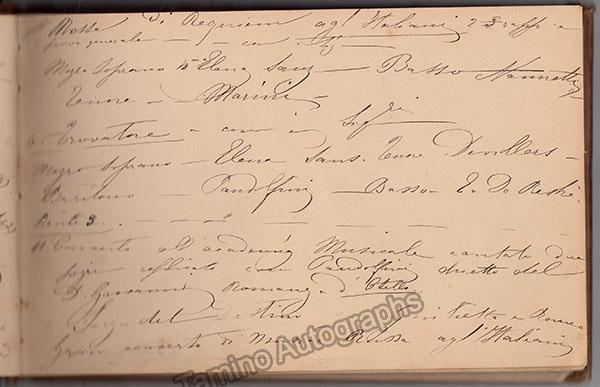 Messa di Requiem agl'Italiani 2 3 rapp
prova generale — con i
Mezzo soprano Elena Sanz — Basso Nannetti
Tenore — Marini —
Trovatore — con i Sigri
Mezzo soprano — Elena Sanz. Tenore Devillers —
Baritono — Pandolfini — Basso — E. De Reské.
Recite 3.
11 Concerto all'accademia Musicale cantate due
replicato con Pandolfini duetto del
Romanza d'Otello
Forza del Destino
Gran concerto di Musica Russa agl'Italiani
Tamino Autographs